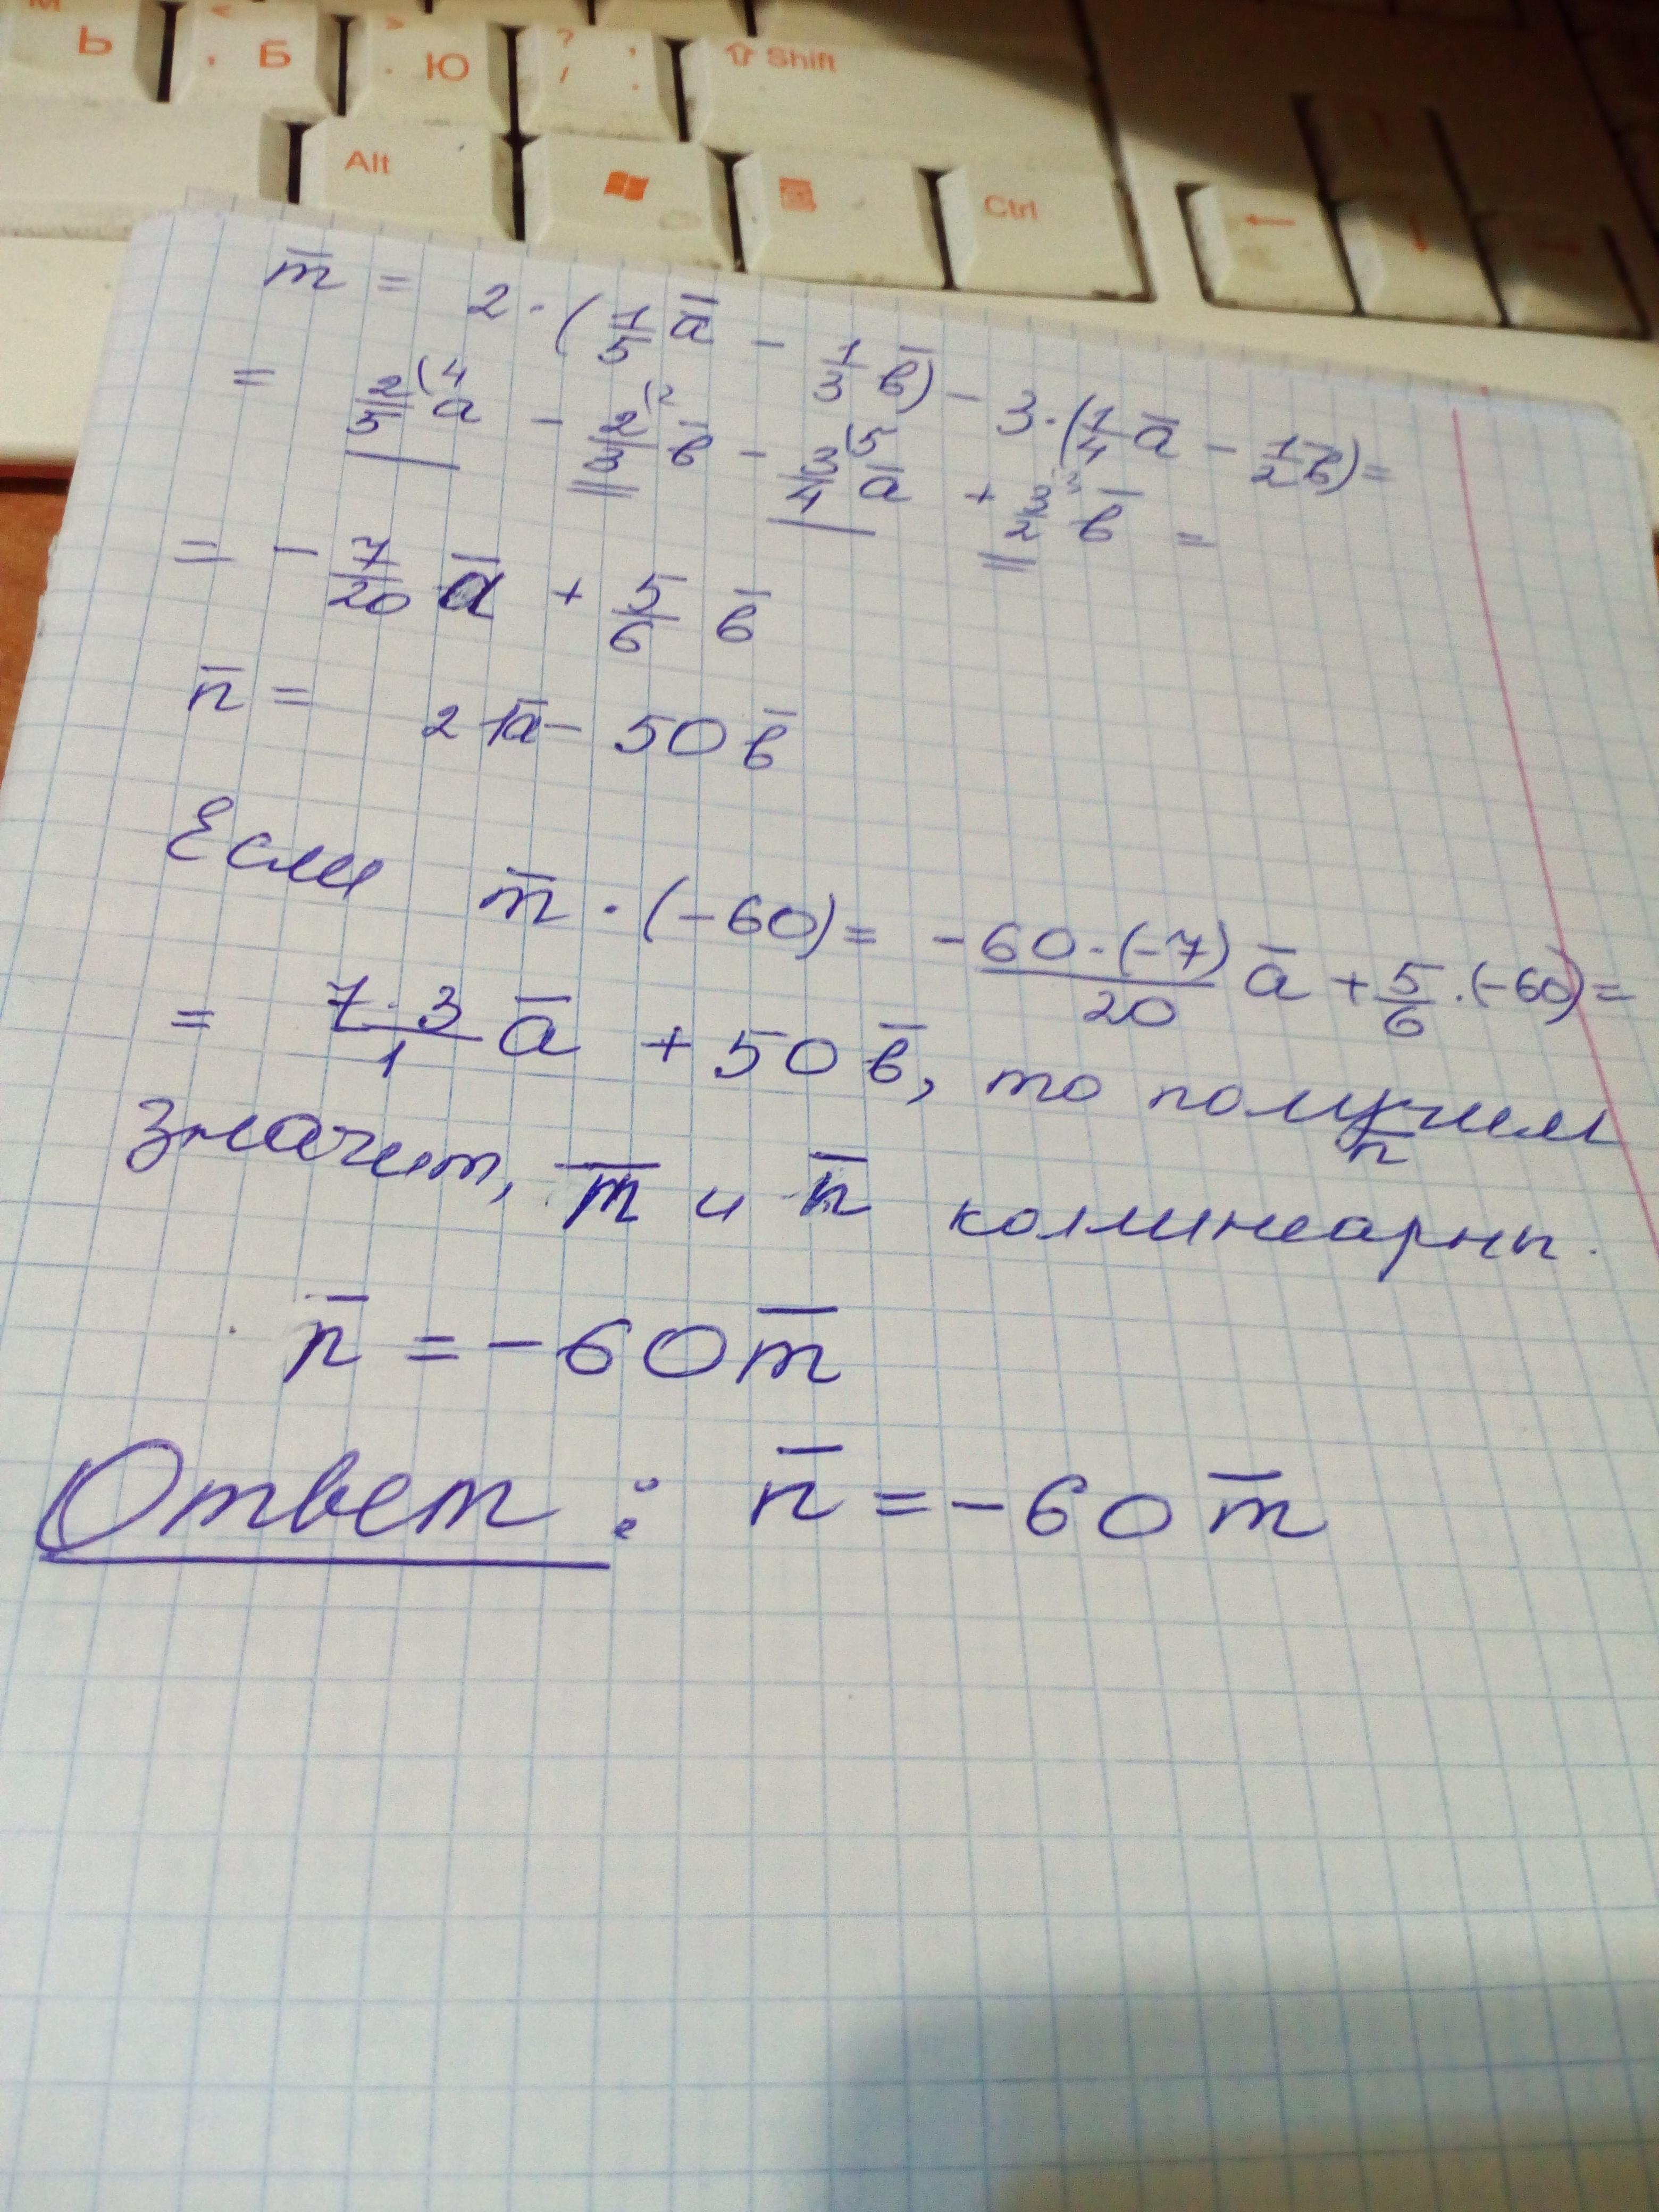 М Ь < , Б > . Ю ? / , . ⇧ Shift
Alt Ctrl ← ↓ →
m̅ = 2·(1/5 a̅ − 1/3 в̅) − 3·(1/4 a̅ − 1/2 в̅) =
= 2/5(4 a − 2/3(2 в̅ − 3/4(5 a̅ + 3/2(3 в̅ =
= − 7/20 a̅ + 5/6 в̅
n̅ = 21a̅ − 50в̅
Если m̅ · (−60) = −60·(−7)/20 a̅ + 5/6 ·(−60) =
= 7·3/1 a̅ + 50в̅, то получим n̅
значит, m̅ и n̅ коллинеарны.
n̅ = −60m̅
Ответ: n̅ = −60m̅